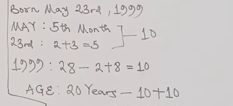 Born May 23rd, 1999
MAY : 5th Month
23rd : 2+3=5
10
1999 : 28 - 2+8 = 10
AGE : 20 Years - 10+10